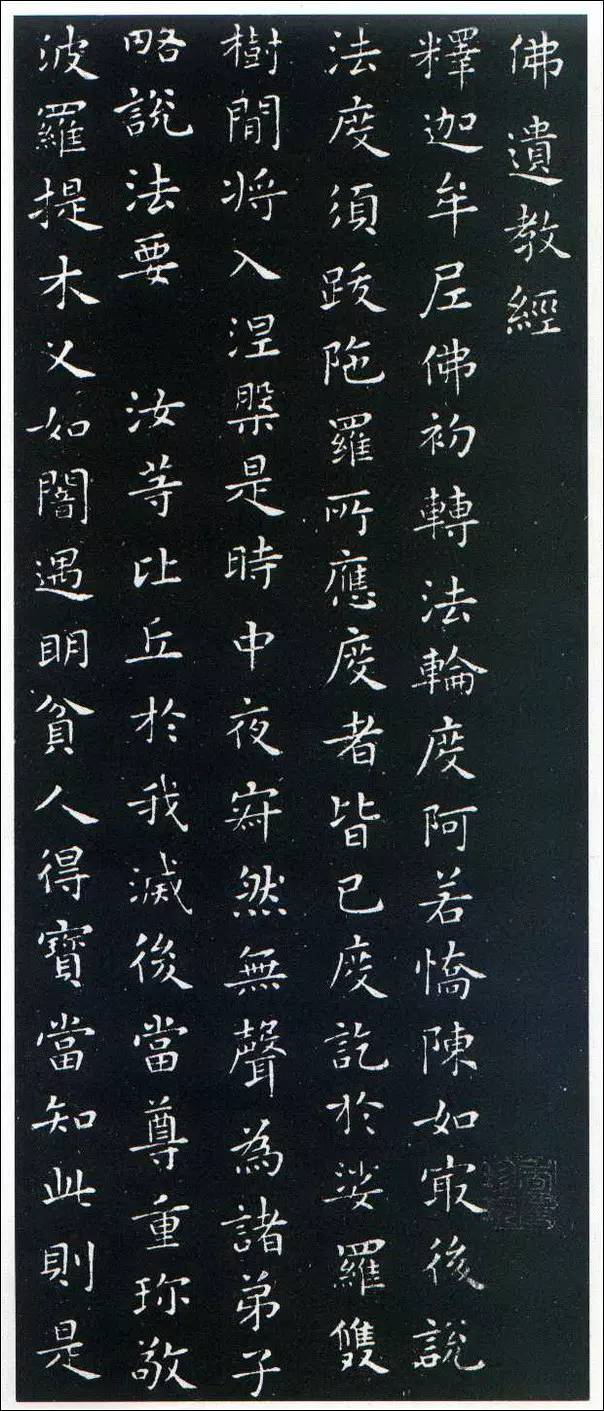 佛遺教經
釋迦牟尼佛初轉法輪度阿若憍陳如㝡後說
法度須跋陁羅所應度者皆已度訖於娑羅雙
樹間将入涅槃是時中夜寂然無聲為諸弟子
略說法要 汝等比丘於我滅後當尊重珎敬
波羅提木叉如闇遇明貧人得寶當知此則是